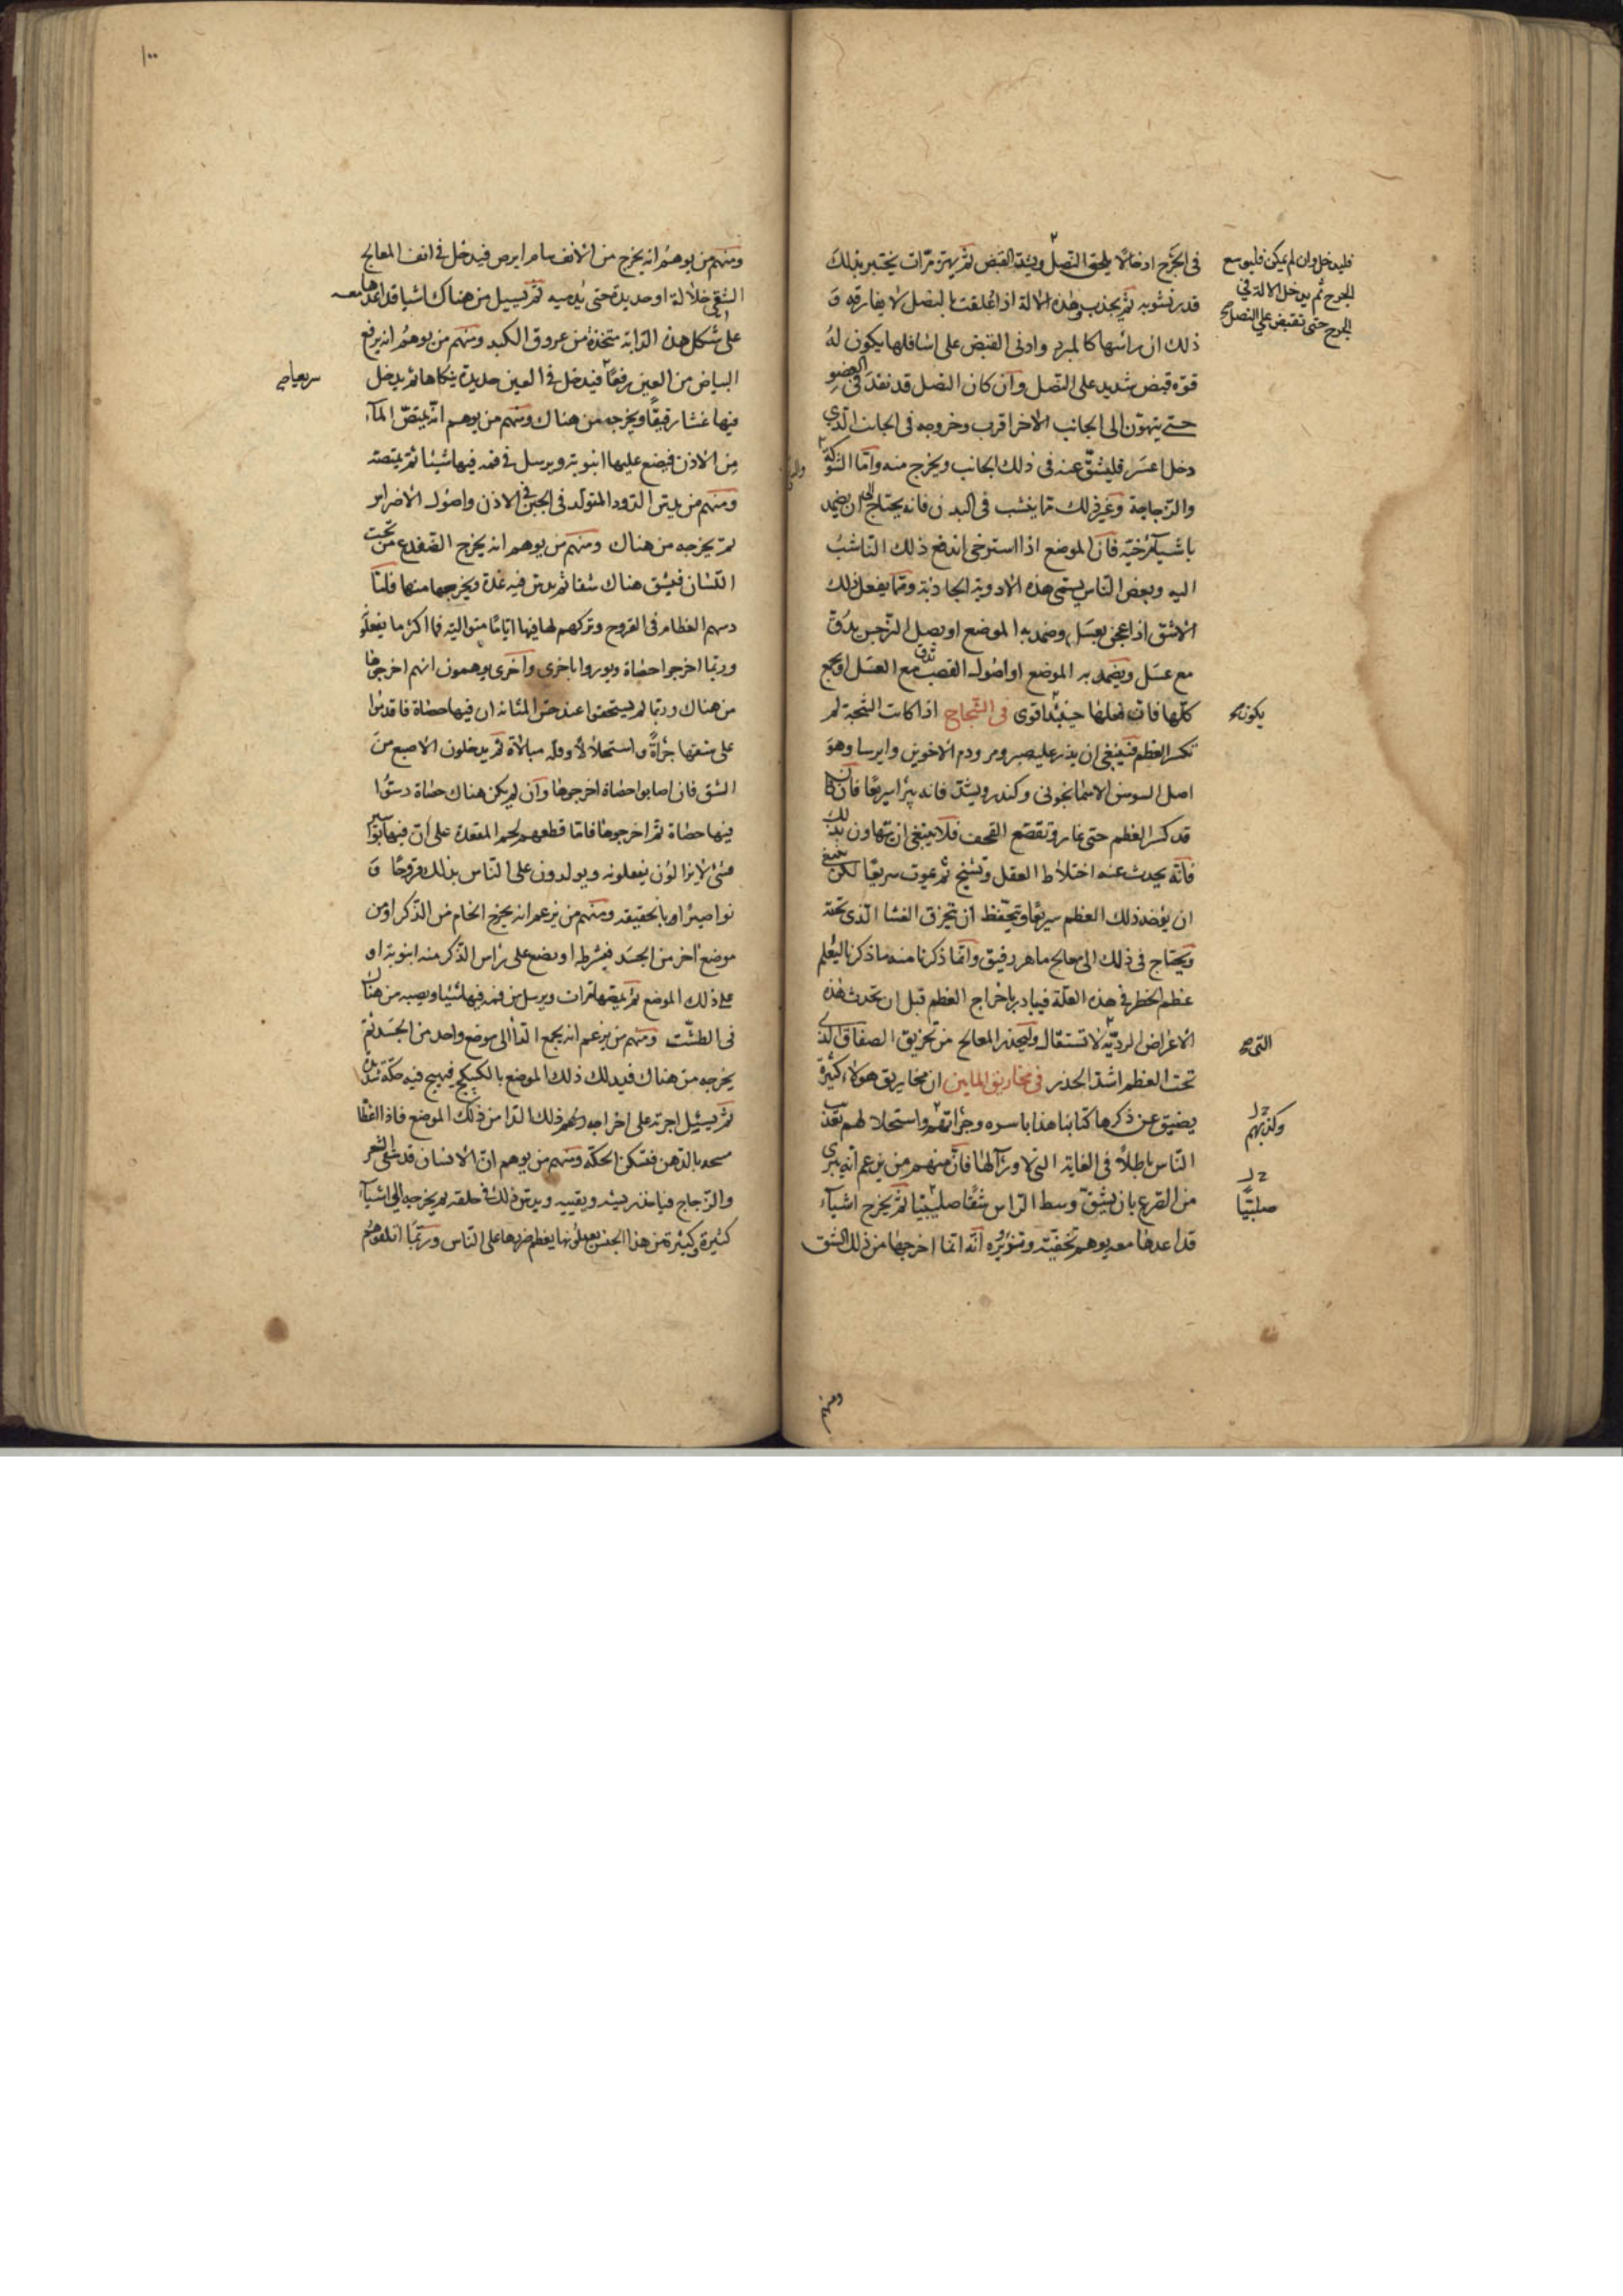 في الجرح ادخالا يلحق النصل ويشد القبض ثم يهز مرات يختبر بذلك
قدر نشوبه ثم يجذب وهذه الالة اذا علقت بالنصل لا يفارقه و
ذلك ان راسها كالمبرد وادنى القبض على اسافلها يكون له
قوة قبض شديد على النصل وان كان النصل قد نفذ في العضو
حتى الى الجانب الاخر اقرب وخروجه في الجانب الذي
دخل اعسر فليشق عنه في ذلك الجانب ويخرج منه واما الشوكة
والزجاجة وغير ذلك مما ينشب في البدن فانه يحتاج الى ان يضمد
باشياء مرخية فان الموضع اذا استرخى اندفع ذلك الناشب
اليه وبعض الناس يسمي هذه الادوية الجاذبة ومما يفعل ذلك
الاشق اذا عجن بعسل وضمد به الموضع او بصل النرجس يدق
مع عسل ويضمد به الموضع او اصول القصب تدق مع العسل او يجمع
كلها فان فعلها حينئذ اقوى في الشجاج اذا كانت الشجة لم
تكسر العظم فينبغي ان يذر عليه صبر ومر ودم الاخوين وايرسا وهو
اصل السوسن الاسمانجوني وكندر ويشد فانه يبرا سريعا فان كان
قد كسر العظم حتى غار وتقصع القحف فلا ينبغي ان يتهاون بذلك
فانه يحدث عنه اختلاط العقل وتشنج ثم يموت سريعا لكن ينبغي
ان يؤخذ ذلك العظم سريعا ويتحفظ ان يخرق الغشا الذي تحته
ويحتاج في ذلك الى معالج ماهر رفيق وانما ذكرنا منه ما ذكرنا ليعلم
عظم الخطر في هذه العلة فيبادر باخراج العظم قبل ان تحدث هذه
الاعراض الردية لا تستقال وليحذر المعالج من تخريق الصفاق الذي
تحت العظم اشد الحذر في مخاريق المابين ان مخاريق هولاء كثيرة
يضيق عن ذكرها كتابنا هذا باسره وجراتهم واستحلالهم تعذيب
الناس باطلا في الغاية التي لا وراء لها فان منهم من يزعم انه يبرى
من الصرع بان يشق وسط الراس شقا صليبيا ثم يخرج اشياء
قد اعدها معه يوهم بخفته وتزويره انه انما اخرجها من ذلك الشق
فليدخل وان لم يمكن فليوسع
الجرح ثم يدخل الالة في
الجرح حتى تقبض على النصل صح
يكون صح
التي صح
وكذبهم
صلبيا
ومنهم
١٠٠
ومنهم من يوهم انه يخرج من الانف سام ابرص فيدخل في انف المعالج
الشقي خلالة او حديدة حتى يدميه ثم يسيل من هناك اشيا قد اعدها معه
على شكل هذه الدابة متخذة من عروق الكبد ومنهم من يوهم انه يرفع
البياض من العين رفعا فيدخل في العين حديدة ينكاها ثم يدخل
فيها غشا رقيقا ويخرجه من هناك ومنهم من يوهم انه يمتص الماء
من الاذن فيضع عليها انبوبة ويرسل في فمه فيها شيئا ثم يمتصه
ومنهم من يدس الدود المتولد في الجبن في الاذن واصول الاضراس
ثم يخرجه من هناك ومنهم من يوهم انه يخرج الضفدع من تحت
اللسان فيشق هناك شقا ثم يدس فيه غدة ويخرجها منها فاما
دسهم العظام في القروح وتركهم لها فيها اياما متوالية فما اكثر ما يفعلو
وربما اخرجوا حصاة وبوروا باخرى واخرى يوهمون انهم اخرجوها
من هناك وربما لم يستحقوا عند جس المثانة ان فيها حصاة فاقدموا
على شقها جراة واستحلالا وقلة مبالاة ثم يدخلون الاصبع من
الشق فان اصابوا حصاة اخرجوها وان لم يكن هناك حصاة دسوا
فيها حصاة ثم اخرجوها فاما قطعهم لحم المقعدة على ان فيها بواسير
فشئ لا يزالون يفعلونه ويولدون على الناس بذلك قروحا و
نواصير او بالحقيقة ومنهم من يزعم انه يخرج الخام من الذكر او من
موضع اخر من الجسد فيشرطه او يضع على راس الذكر منه انبوبة او
على ذلك الموضع ثم يمصها مرات ويرسل من فمه فيها شيئا ويصبه من هناك
في الطشت ومنهم من يزعم انه يجمع الداا الى موضع واحد من الجسد ثم
يخرجه من هناك فيدلك ذلك الموضع بالكبيكج فيهيج فيه حكة شديدة
ثم يسئل اجرته على اخراجه ذلك الدا من ذلك الموضع فاذا اعطا
مسحه بالدهن فتسكن الحكة ومنهم من يوهم ان الانسان قد سقى الشعر
والزجاج فياخذ ريشة ويقييه ويدس ذلك في حلقه ثم يخرجه الى اشياء
كثيرة وكثيرة من هذا الجنس يعملونها يعظم ضررها على الناس وربما اتلفوهم